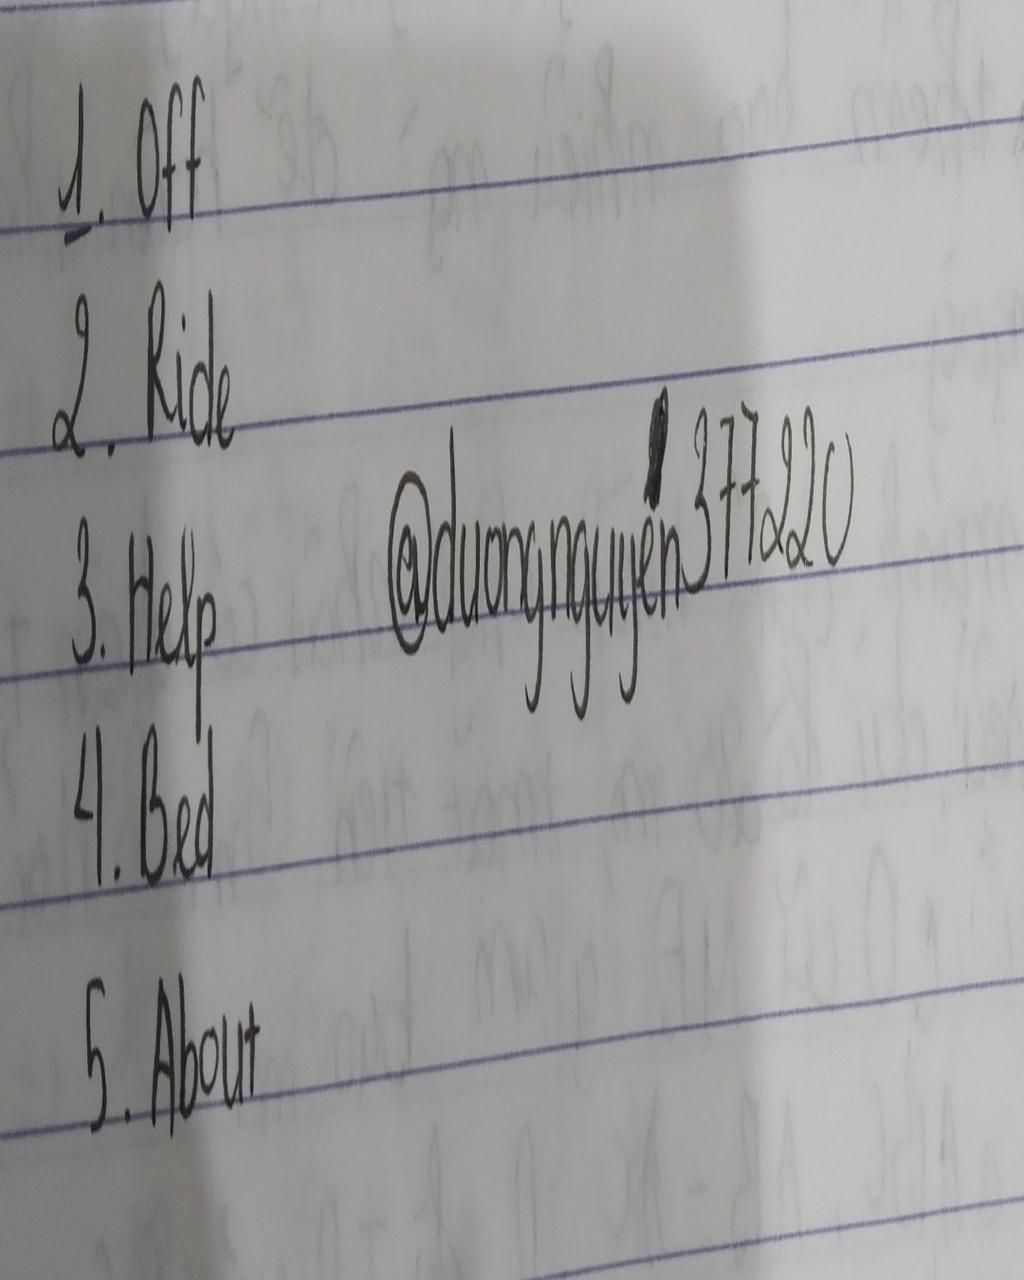 1. Off
2. Ride
3. Help
@duongnguyen377220
4. Bed
5. About